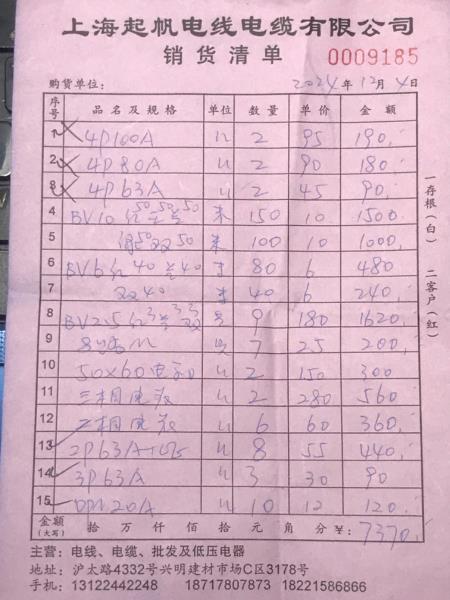 上海起帆电线电缆有限公司
销货清单 0009185
购货单位： 2024年12月4日
序号 品名及规格 单位 数量 单价 金额
1 4P100A 〃 2 95 190
2 4P80A 〃 2 90 180
3 4P63A 〃 2 45 90
4 BV10 红50 50 50 米 150 10 1500
5 50 双50 米 100 10 1000
6 BV6红40 40 米 80 6 480
7 双40 米 40 6 240
8 BV2.5红3 3 双3 9 180 1620
9 8 7 25 200
10 50×60电 〃 2 150 300
11 三相电表 〃 2 280 560
12 二相电表 〃 6 60 360
13 2P63A 〃 8 55 440
14 3P63A 〃 3 30 90
15 DPN20A 〃 10 12 120
金额(大写) 拾 万 仟 佰 拾 元 角 分 ¥: 7370
一存根(白) 二客户(红)
主营：电线、电缆、批发及低压电器
地址：沪太路4332号兴明建材市场C区3178号
手机：13122442248 18717807873 18221586866